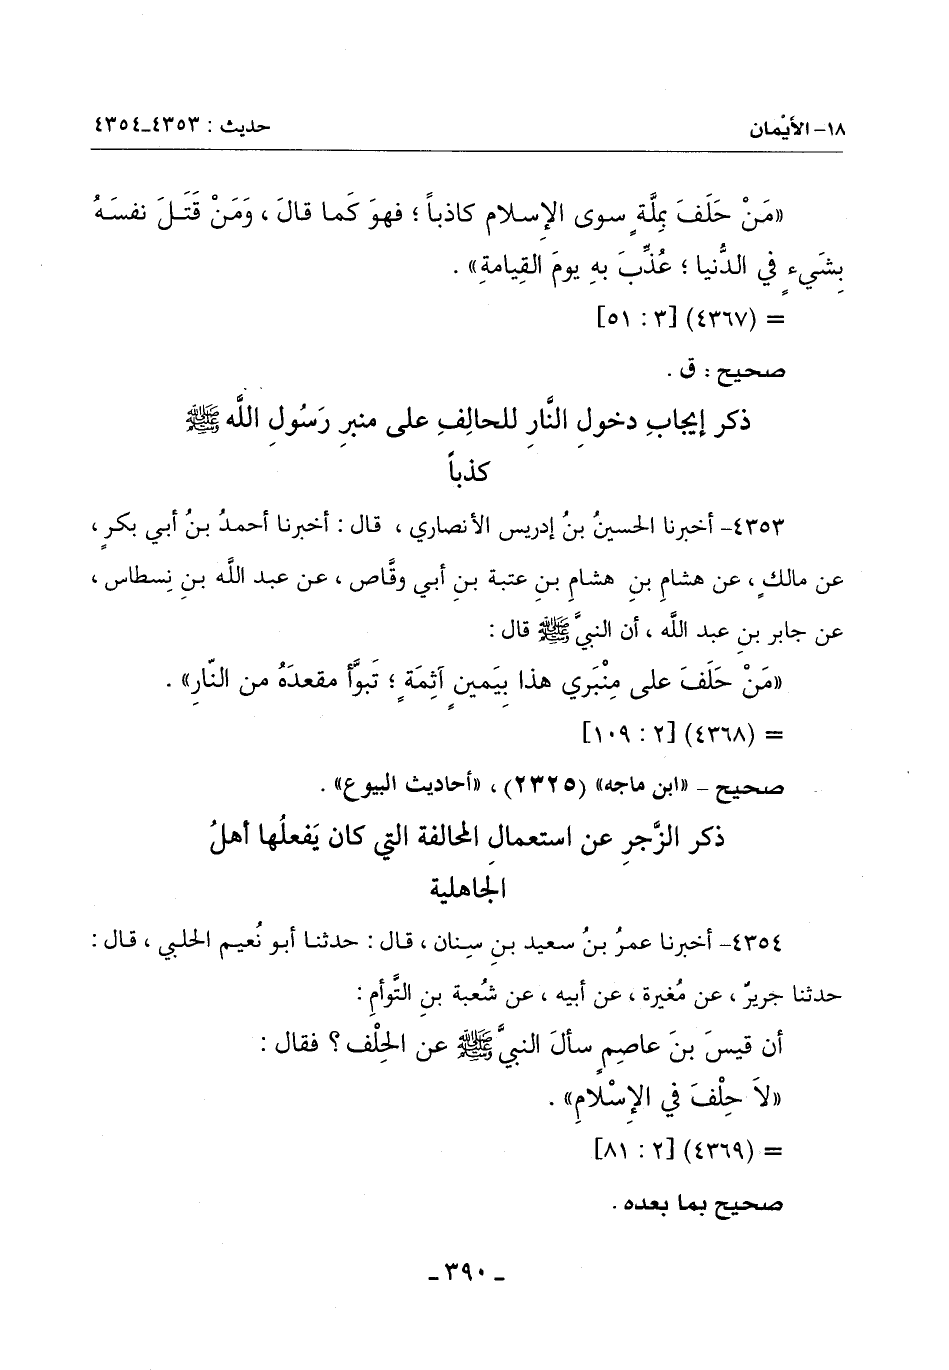 ١٨- الأيْمان حديث : ٤٣٥٣-٤٣٥٤
«مَنْ حَلَفَ بِمِلَّةٍ سوى الإِسلام كاذباً ؛ فهوَ كَما قالَ ، وَمَنْ قَتَلَ نفسَهُ
بِشَيءٍ في الدُّنيا ؛ عُذِّبَ بهِ يومَ القِيامةِ» .
= (٤٣٦٧) [٣ : ٥١]
صحيح : ق .
ذكر إيجابِ دخولِ النَّارِ للحالِفِ على منبرِ رَسُولِ اللَّه ﷺ
كذباً
٤٣٥٣- أخبرنا الحسينُ بنُ إدريس الأنصاري ، قال : أخبرنا أحمدُ بنُ أبي بكرٍ ،
عن مالكٍ ، عن هشامِ بنِ هشامِ بنِ عتبة بنِ أبي وقَّاص ، عن عبد اللَّه بنِ نِسطاس ،
عن جابر بنِ عبد اللَّه ، أن النبيَّ ﷺ قال :
«مَنْ حَلَفَ على مِنْبَري هذا بِيَمينٍ آثِمَةٍ ؛ تَبوَّأ مقعدَهُ من النّارِ» .
= (٤٣٦٨) [٢ : ١٠٩]
صحيح - «ابن ماجه» (٢٣٢٥) ، «أحاديث البيوع» .
ذكر الزَّجرِ عن استعمالِ المحالفة التي كان يَفعلُها أهلُ
الجَاهلية
٤٣٥٤- أخبرنا عمرُ بنُ سعيد بنِ سِنان ، قال : حدثنا أبو نُعيم الحلبي ، قال :
حدثنا جريرٌ ، عن مُغيرة ، عن أبيه ، عن شُعبة بنِ التَّوأمِ :
أن قيسَ بنَ عاصِمٍ سألَ النبيَّ ﷺ عن الحِلْف ؟ فقال :
«لاَ حِلْفَ في الإِسْلامِ» .
= (٤٣٦٩) [٢ : ٨١]
صحيح بما بعده .
- ٣٩٠ -